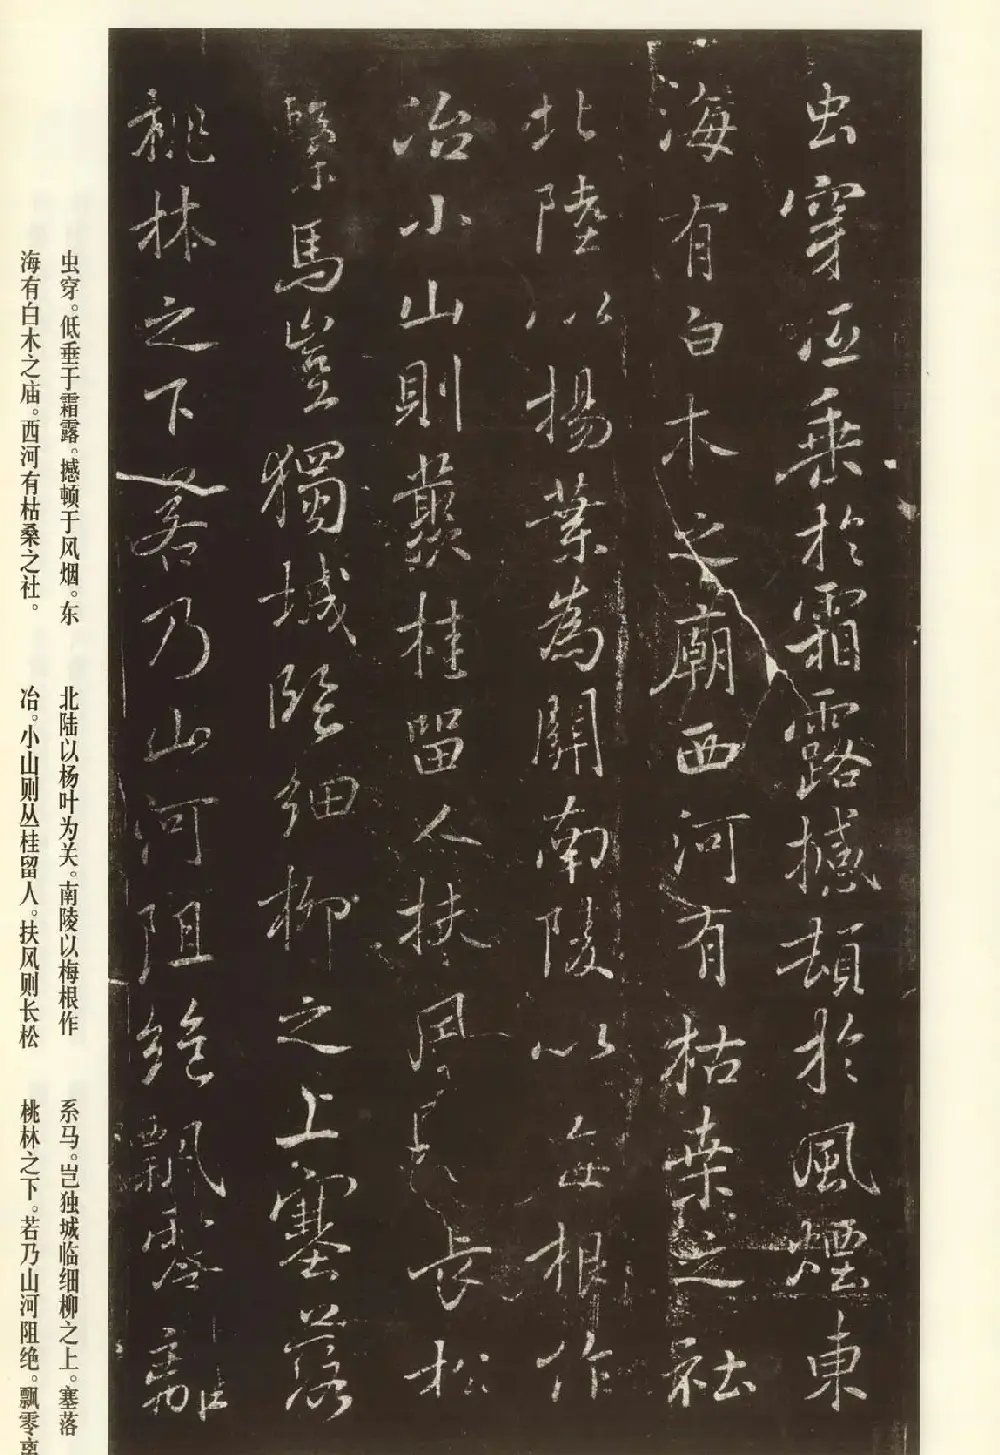 虫穿低垂於霜露撼頓於風煙東
海有白木之廟西河有枯桒之社
北陸以楊葉為關南陵以梅根作
冶小山則叢桂留人扶風則長松
繫馬豈獨城臨細柳之上塞落
桃林之下若乃山河阻絶飄零離
虫穿。低垂于霜露。撼顿于风烟。东
海有白木之庙。西河有枯桑之社。
北陆以杨叶为关。南陵以梅根作
冶。小山则丛桂留人。扶风则长松
系马。岂独城临细柳之上。塞落
桃林之下。若乃山河阻绝。飘零离